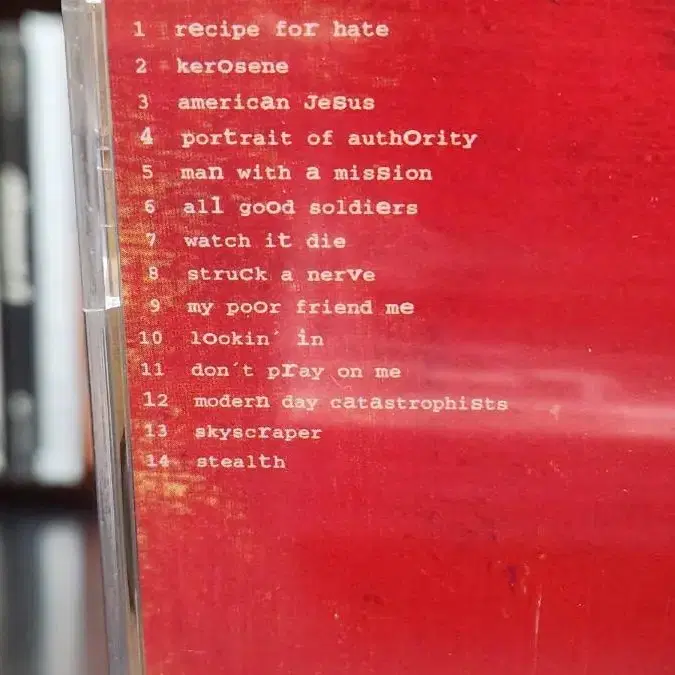 1 recipe for hate
2 kerOsene
3 american JeSus
4 portrait of authOrity
5 man with a misSion
6 all good soldiers
7 watch it die
8 struCk a nerVe
9 my poor friend me
10 lookin' in
11 don't pray on me
12 modern day catastrophists
13 skyscraper
14 stealth